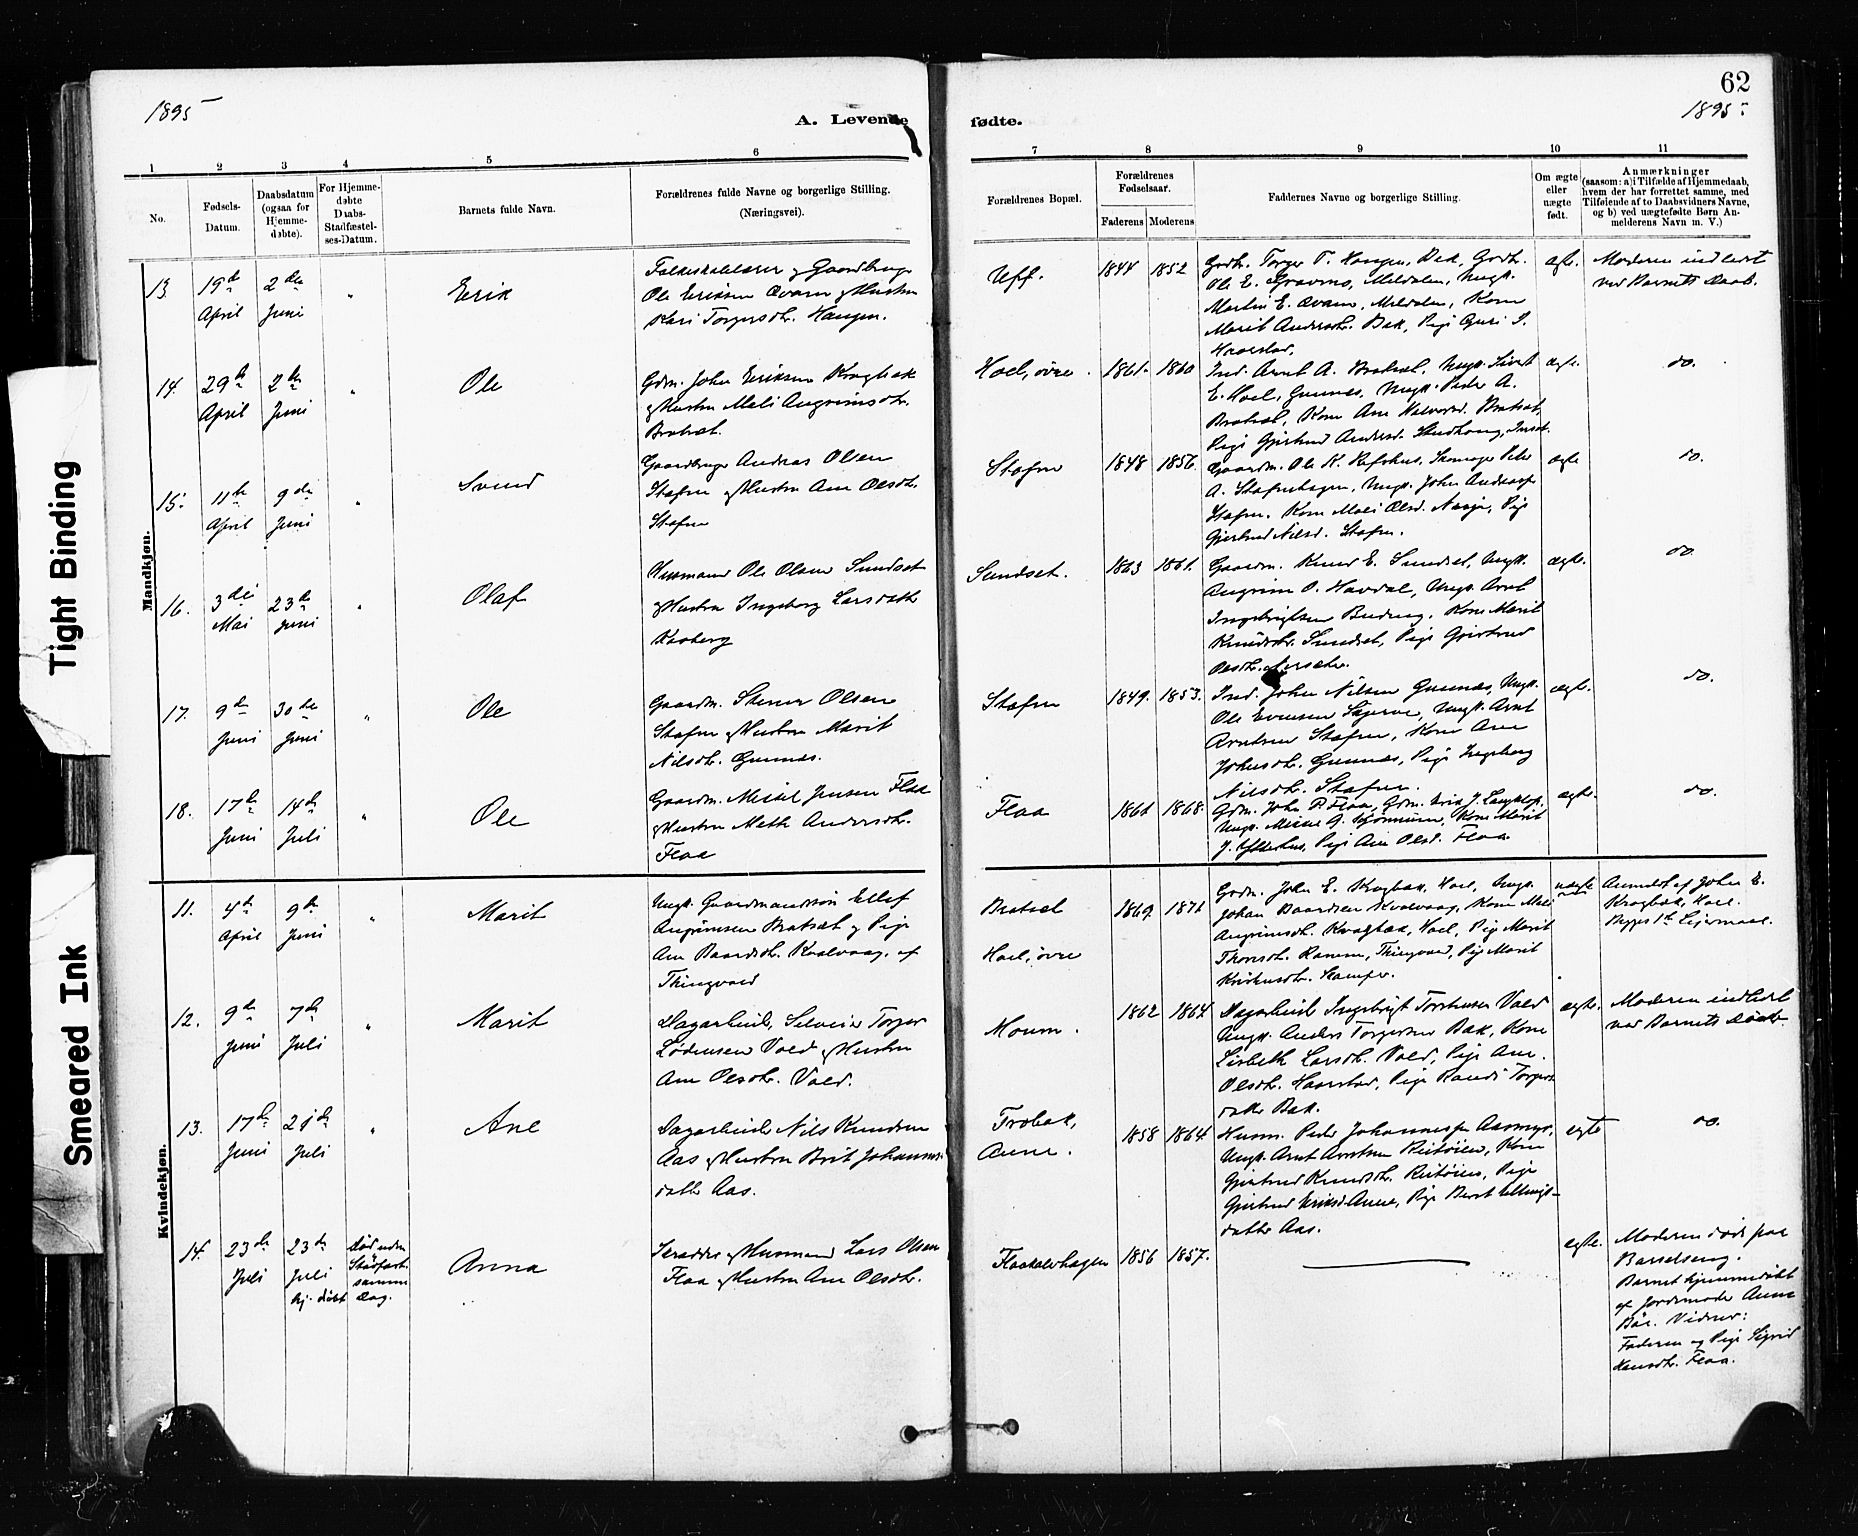 1895
A. Levende
fødte.
62
1895
1 2 3 4 5 6 7 8 9 10 11
No.
Fødsels-
Datum.
Daabsdatum
(ogsaa for
Hjemme-
døbte).
For Hjemme-
døbte
Daabs-
Stadfæstel-
ses-Datum.
Barnets fulde Navn.
Forældrenes fulde Navne og borgerlige Stilling.
(Næringsvei).
Forældrenes Bopæl.
Forældrenes
Fødselsaar.
Faderens Moderens
Faddernes Navne og borgerlige Stilling.
Om ægte
eller
uægte
født.
Anmærkninger
(saasom: a) i Tilfælde af Hjemmedaab,
hvem der har forrettet samme, med
Tilføiende af to Daabsvidners Navne,
og b) ved uægtefødte Børn An-
melderens Navn m. V.)
Mandkjøn.
13. 19de
April
2den
Juni
"
Erik
Folkeskolelærer og Gaardbruger
Ole Eriksen Evavn og Hustru
Kari Torgersdtr. Haugen.
Uff.
1844 1852
Ole E. Meldalen, Ungk.
Martin E. Meldalen, Kone
Marit Andersdtr. Bak, Pige Guri
ægte.
Moderen indledet
ved Barnets Daab.
14. 29de
April
2den
Juni
"
Ole
Gdm. John Eriksen Krogbæk
og Hustru Mali Angrimsdtr.
Bratset.
Hoel, øvre.
1861. 1860
Ind. Arnt A. Bratset, Ungk. Sivert
E. Hoel, Gunnes, Ungk. Peder A.
Bratset, Kone Ane Halvorsd. Bratset,
Pige Gjertrud Andersd.
ægte.
do.
15. 11te
April
9de
Juni
"
Svend
Gaardbruger Andreas Olsen
Stafne og Hustru Ane Olesdtr.
Stafne
Stafne
1848 1856.
Gaardm. Ole K. Skomager Peder
A. Stafnehagen, Ungk. John Andreas
Stafne. Kone Mali Olsd. Pige
Gjertrud Nilsd. Stafne.
ægte
do.
16. 3die
Mai
23de
Juni
"
Olaf
Husmand Ole Olsen Sundset
og Hustru Ingeborg Larsdatter
Sundset.
1863 1861.
Gaardm. Knud E. Sundset, Ungk.
Angrim O. Havdal, Ungk. Arnt
Ingebrigtsen Kone Marit
Knudsdtr. Sundset, Pige Gjertrud
Olesdtr.
ægte.
do
17. 9de
Juni
30de
Juni
"
Ole
Gaardm. Stener Olsen
Stafne og Hustru Marit
Nilsdtr. Gunnes.
Stafne
1849. 1853.
Ind. John Nilsen Gunnes, Ungk.
Ole Evensen Ungk. Arnt
Arntsen Stafne, Kone Ane
Johnsdtr. Gunnes, Pige Ingeborg
Nilsdtr. Stafne.
ægte.
do.
18. 17de
Juni
14de
Juli
"
Ole
Gaardm. Mikkel Jensen Flaa
og Hustru Mette Andersdtr.
Flaa
Flaa
1861 1868.
Gdm. John P. Flaa, Gdm. Erik J.
Ungk. Mikkel Kone Marit
J. Pige Ane Olsd. Flaa
ægte.
do.
Kvindekjøn.
11. 4de
April
9de
Juni
"
Marit
Ungk. Gaardmandssøn Ellef
Angrimsen Bratset og Pige
Ane Baardsdtr. Kvalvaag, af
Thingvold
Bratset
Hoel, øvre
1869. 1871
Gdm. John E. Krogbæk, Hoel, Ungk.
Johan Baardsen Kvalvaag, Kone Mali
Angrimsdtr. Krogbæk, Hoel, Pige Marit
Thingvold, Pige Marit
uægte
Anmeldt af John E.
Krogbæk, Hoel.
Begges 1ste Leiermaal.
12. 9de
Juni
7de
Juli
"
Marit
Dagarbeid. Selveier Torger
Vold og Hustru
Ane Olesdtr. Vold.
Moum.
1862 1864
Dagarbeid. Ingebrigt Vold
Ungk. Anders Torgersen Bak, Kone
Lisbeth Larsdtr. Vold, Pige Ane
Olesdtr. Haarstad, Pige Randi Torgers-
datter Bak.
ægte.
Moderen indledet
ved Barnets Daab.
13. 17de
Juni
21de
Juli
"
Ane
Dagarbeider Nils Knudsen
Aas og Hustru Brit Johannes-
datter Aas.
Trobak,
Aune.
1858 1864
Husm. Peder Johannesen
Ungk. Arnt Arntsen Reitøien, Kone
Gjertrud Knudsdtr. Reitøien, Pige
Gjertrud Eriksd. Aune, Pige Berit
datter Aas.
ægte
do.
14. 23de
Juli
23de
Juli
hj. døbt
død uden
Stadfæst.
samme
Dag.
Anna
Skrædder og Husmand Lars Olsen
Flaa og Hustru Ane Olesdtr.
Flaakalvhagen
1856 1857.
ægte.
Moderen død paa
Barselseng.
Barnet hjemmedøbt
af Jordemoder Anne
Vidner:
Faderen og Pige Sigrid
Hansdtr. Flaa.
Tight Binding
Smeared Ink